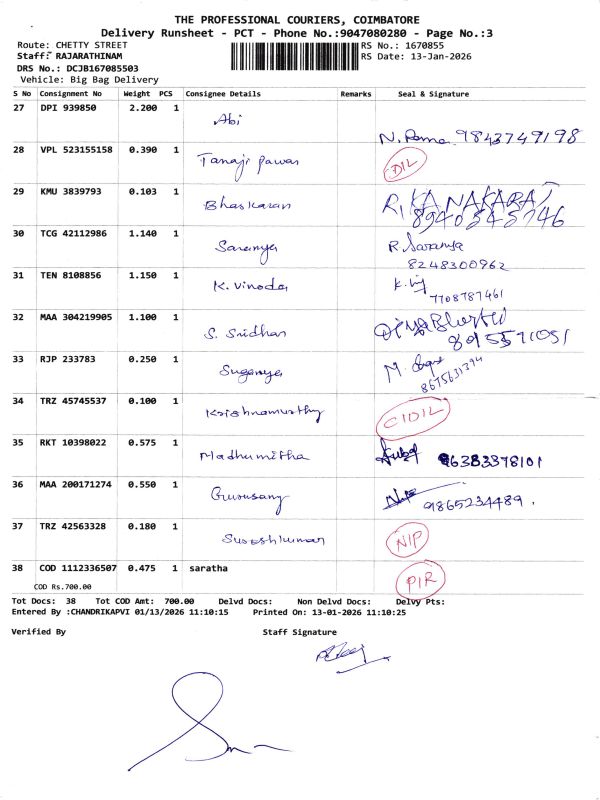 THE PROFESSIONAL COURIERS, COIMBATORE
Delivery Runsheet - PCT - Phone No.:9047080280 - Page No.:3
Route: CHETTY STREET RS No.: 1670855
Staff: RAJARATHINAM RS Date: 13-Jan-2026
DRS No.: DCJB167085503
Vehicle: Big Bag Delivery
S No Consignment No Weight PCS Consignee Details Remarks Seal & Signature
27 DPI 939850 2.200 1 Abi
N. Rama 9843749198
28 VPL 523155158 0.390 1 Tanaji pawar DIL
29 KMU 3839793 0.103 1 Bhaskaran R. KANAKARAJ
8940545746
30 TCG 42112986 1.140 1 Saranya R. Saranya
8248300962
31 TEN 8108856 1.150 1 K. Vinoda
7708787461
32 MAA 304219905 1.100 1 S. Sridhar
33 RJP 233783 0.250 1 Suganya M.
8675631394
34 TRZ 45745537 0.100 1 Krishnamurthy CIDIL
35 RKT 10398022 0.575 1 Madhumitha 96383378101
36 MAA 200171274 0.550 1 Gurusang 9865234489.
37 TRZ 42563328 0.180 1 Sureshkumar NIP
38 COD 1112336507 0.475 1 saratha PIR
COD Rs.700.00
Tot Docs: 38 Tot COD Amt: 700.00 Delvd Docs: Non Delvd Docs: Delvy Pts:
Entered By :CHANDRIKAPVI 01/13/2026 11:10:15 Printed On: 13-01-2026 11:10:25
Verified By Staff Signature